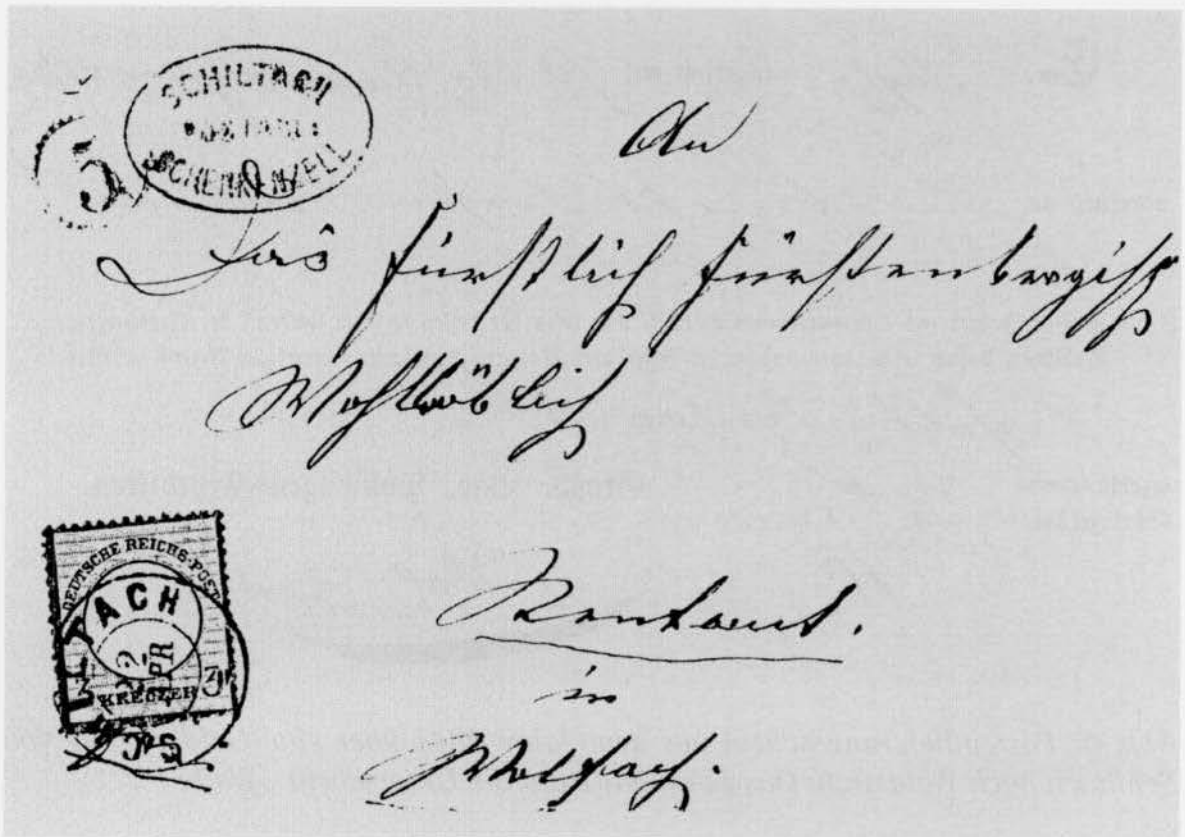 SCHILTACH
SCHENKENZELL
An
Das Fürstlich Fürstenbergisch
Wohllöblich
Rentamt.
in
Wolfach.
DEUTSCHE REICHS-POST
3 KREUZER
APR